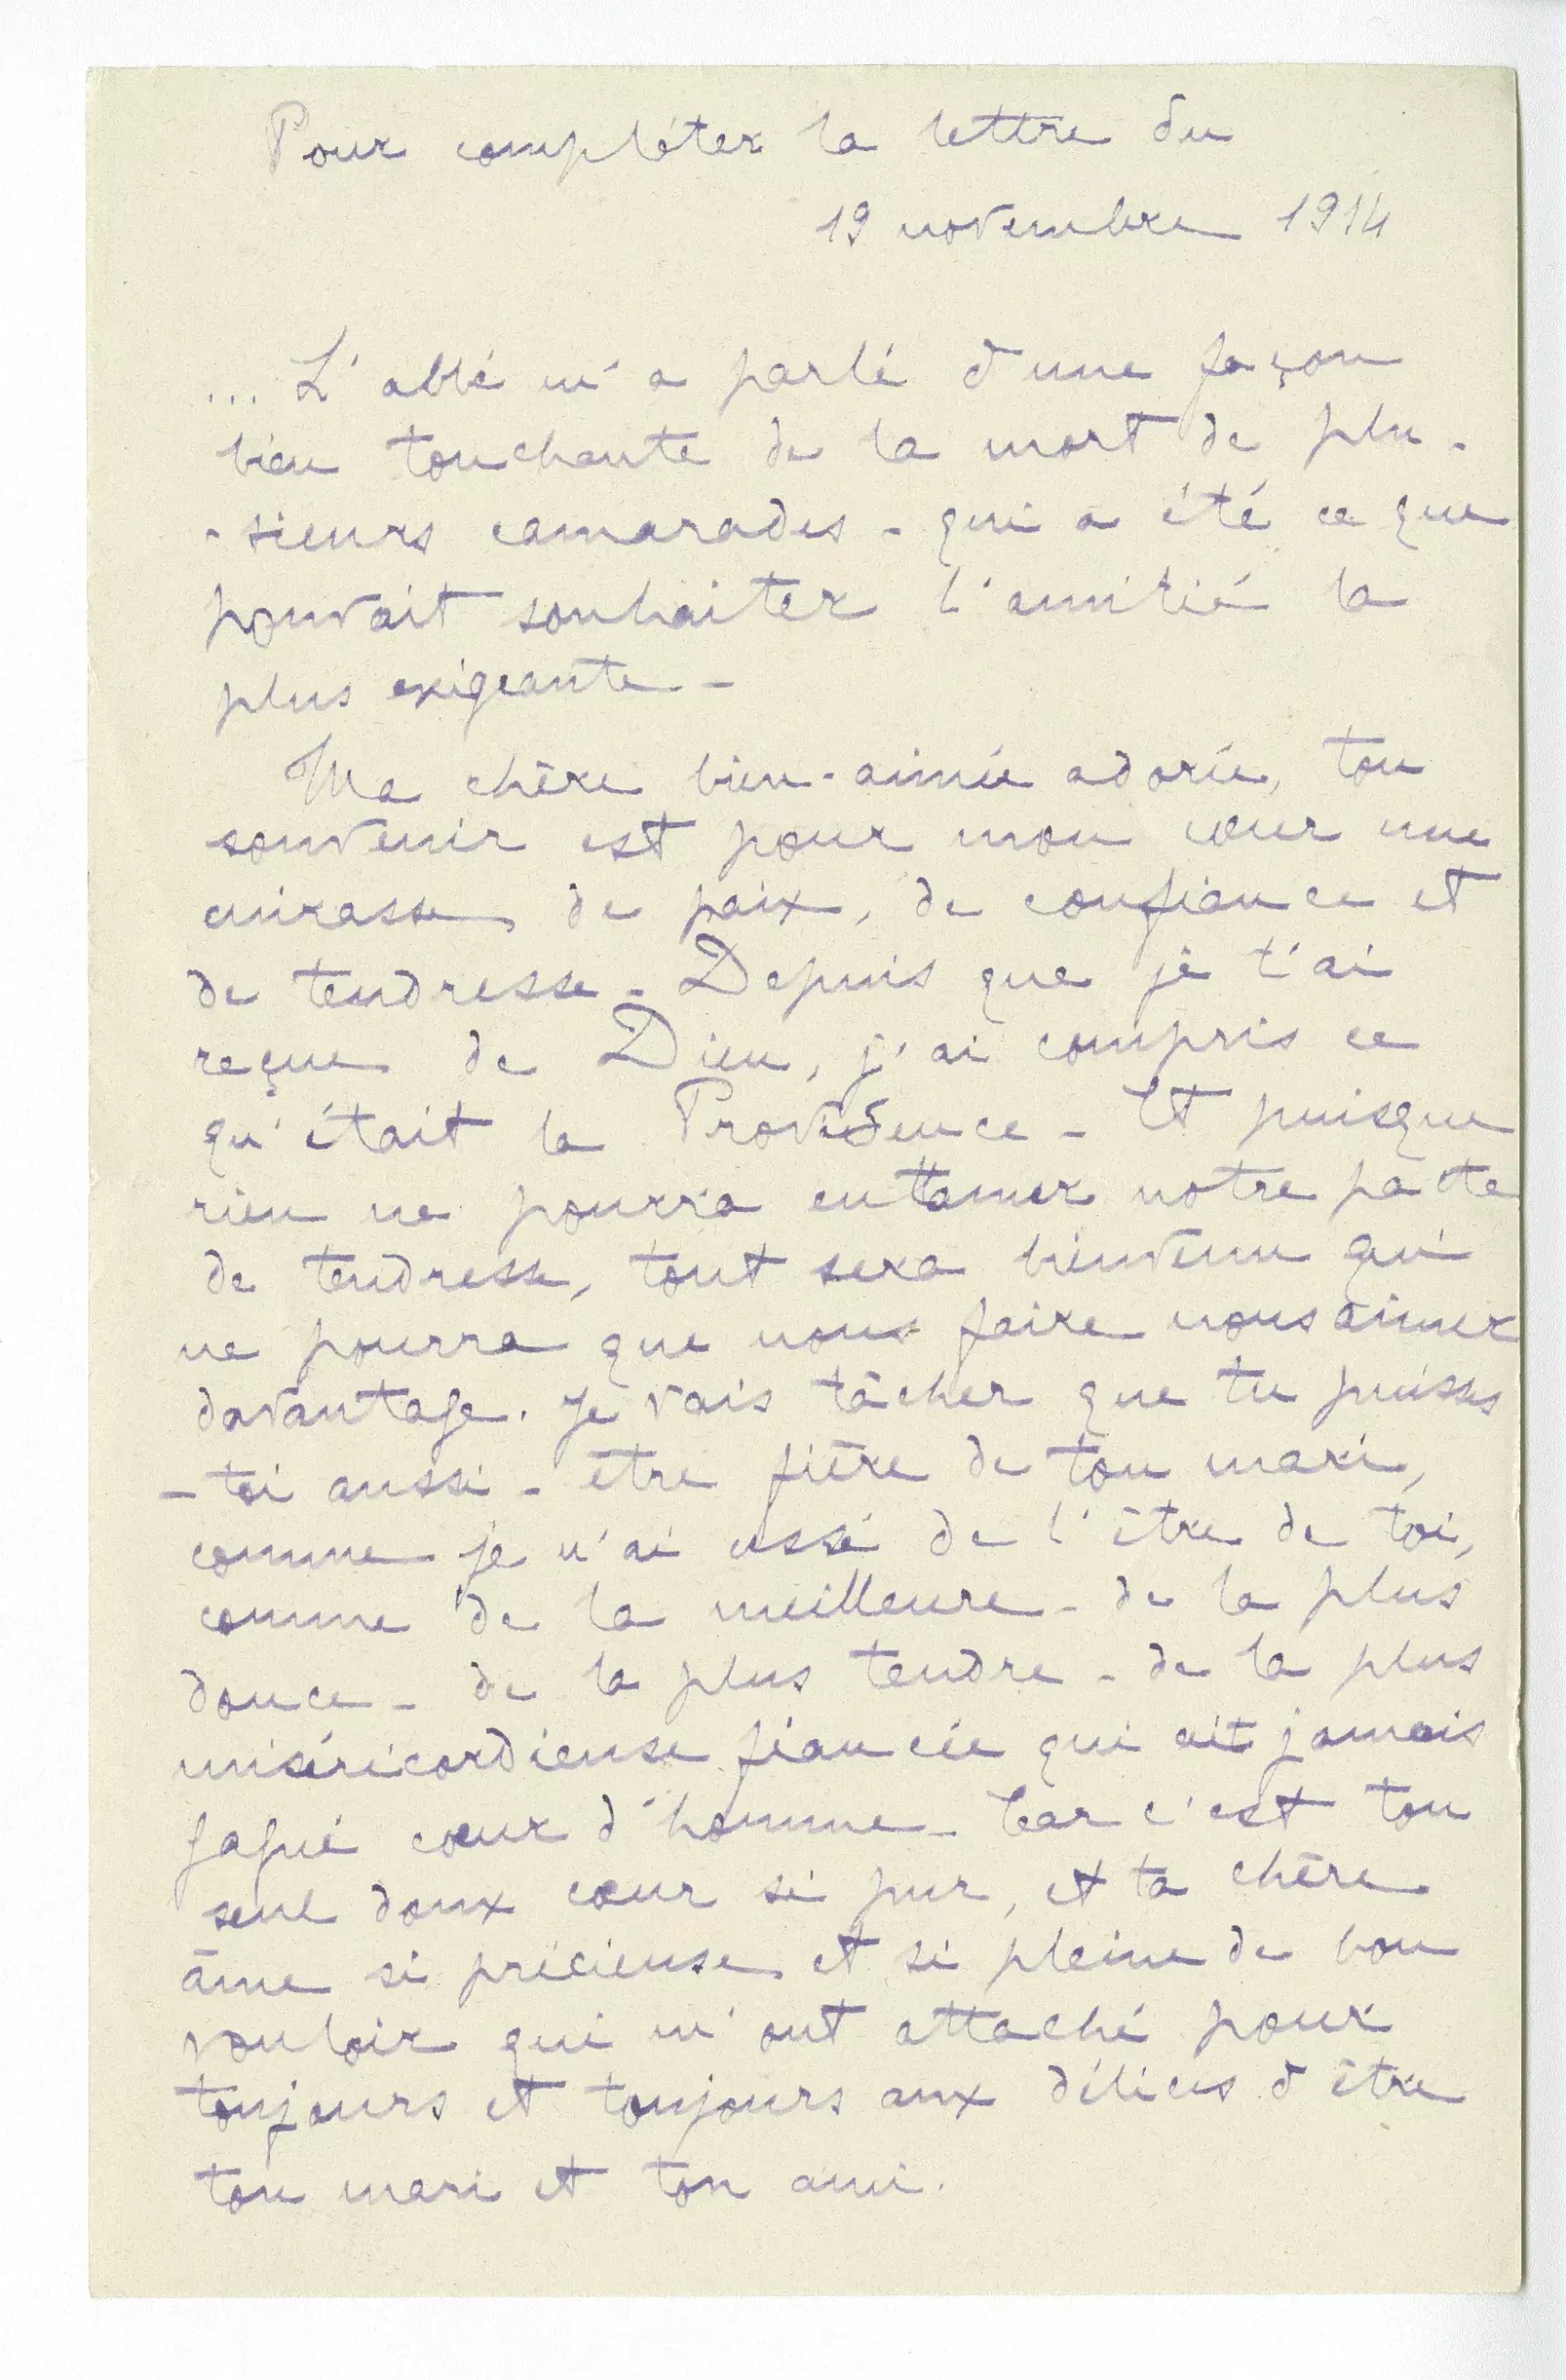 Pour compléter la lettre du
19 novembre 1914
... L'abbé m'a parlé d'une façon
bien touchante de la mort de plu-
-sieurs camarades - qui a été ce que
pouvait souhaiter l'amitié la
plus exigeante -
Ma chère bien-aimée adorée, ton
souvenir est pour mon cœur une
cuirasse de paix, de confiance et
de tendresse - Depuis que je t'ai
reçue de Dieu, j'ai compris ce
qu'était la Providence - Et puisque
rien ne pourra entamer notre pacte
de tendresse, tout sera bienvenu qui
ne pourra que nous faire nous aimer
davantage. Je vais tâcher que tu puisses
- toi aussi - être fière de ton mari,
comme je n'ai cessé de l'être de toi,
comme de la meilleure - de la plus
douce - de la plus tendre - de la plus
miséricordieuse fiancée qui ait jamais
gagné cœur d'homme - Car c'est ton
seul doux cœur si pur, et ta chère
âme si précieuse et si pleine de bon
vouloir qui m'ont attaché pour
toujours et toujours aux délices d'être
ton mari et ton ami.